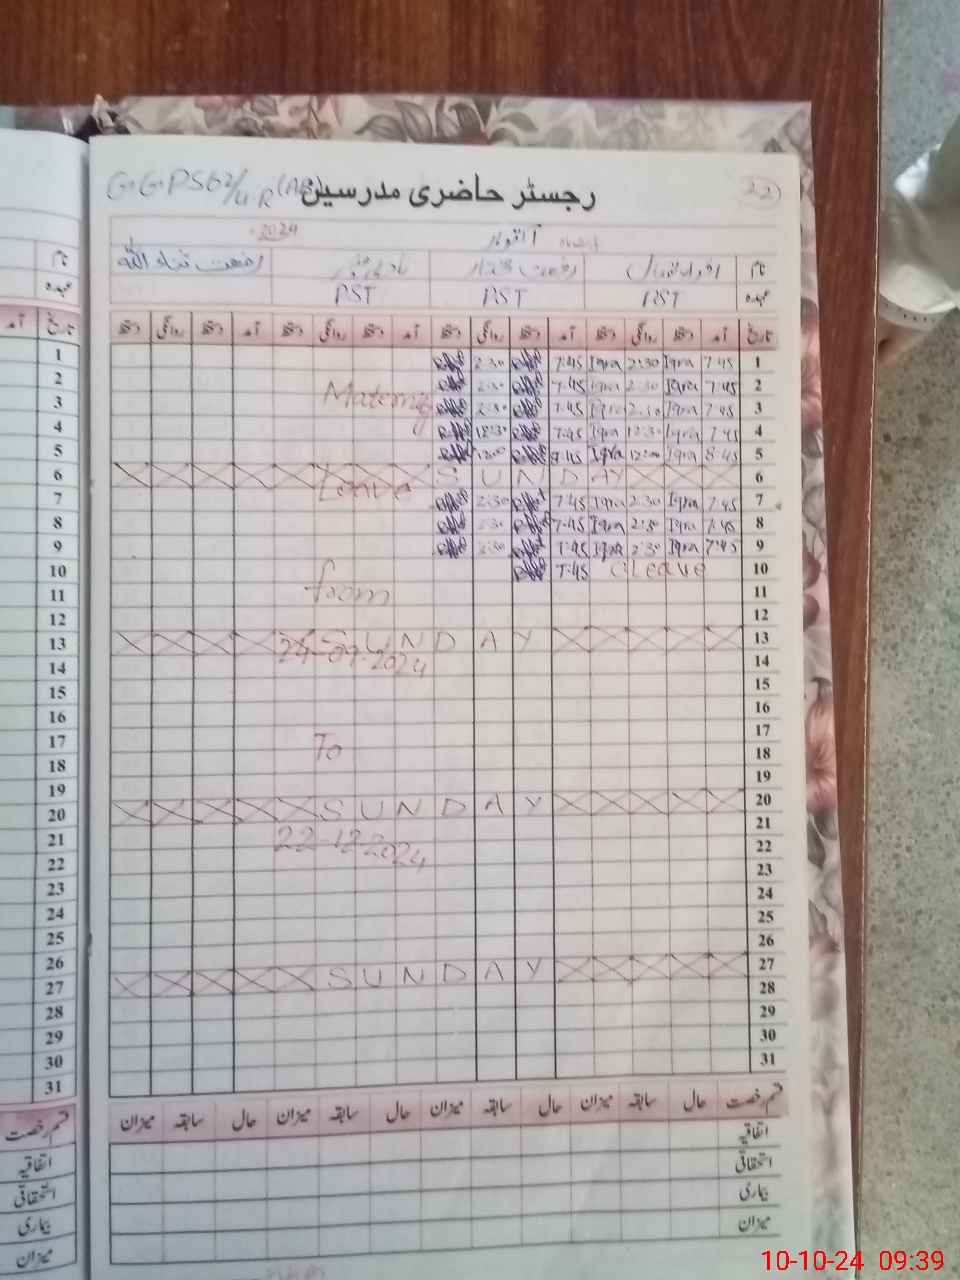 G.G.PS 62/4-R (AB) رجسٹر حاضری مدرسین 22
اکتوبر 2024
نام اقراء رفعت رفعت ثناء اللہ
عہدہ PST PST PST
تاریخ آمد دستخط روانگی دستخط آمد دستخط روانگی دستخط آمد دستخط روانگی دستخط آمد دستخط روانگی دستخط
1 7:45 Iqra 2:30 Iqra 7:45 2:30
2 7:45 Iqra 2:30 Iqra 7:45 2:30
3 7:45 Iqra 2:30 Iqra 7:45 2:30 Maternity
4 7:45 Iqra 12:30 Iqra 7:45 12:30
5 8:45 Iqra 12:00 Iqra 8:45 12:00
6 SUNDAY
Leave
7 7:45 Iqra 2:30 Iqra 7:45 2:30
8 7:45 Iqra 2:30 Iqra 7:45 2:30
9 7:45 Iqra 2:30 Iqra 7:45 2:30
10 C Leave 7:45
from
11
12
13 SUNDAY
24-09-2024
14
15
16
17
To
18
19
20 SUNDAY
21
22-12-2024
22
23
24
25
26
27 SUNDAY
28
29
30
31
قسم رخصت حال سابقہ میزان حال سابقہ میزان حال سابقہ میزان حال سابقہ میزان
اتفاقیہ
استحقاقی
بیماری
میزان
نام
عہدہ
تاریخ آمد
1
2
3
4
5
6
7
8
9
10
11
12
13
14
15
16
17
18
19
20
21
22
23
24
25
26
27
28
29
30
31
قسم رخصت
اتفاقیہ
استحقاقی
بیماری
میزان
10-10-24 09:39